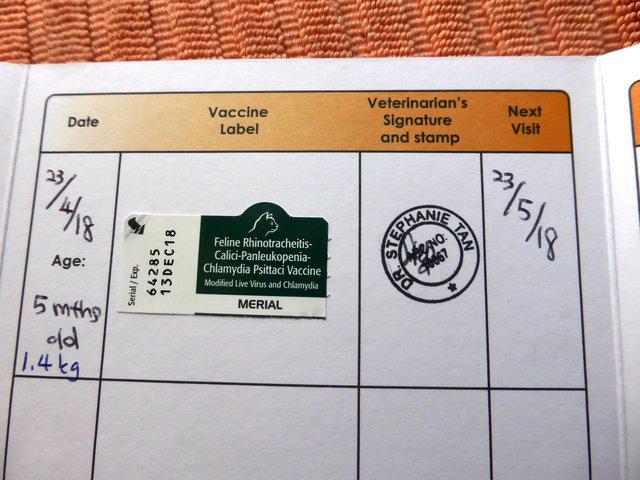 Date
Vaccine
Label
Veterinarian's
Signature
and stamp
Next
Visit
23/4/18
Age:
5 mths
old
1.4 kg
Serial / Exp.
64285
13DEC18
Feline Rhinotracheitis-
Calici-Panleukopenia-
Chlamydia Psittaci Vaccine
Modified Live Virus and Chlamydia
MERIAL
DR STEPHANIE TAN
NO:
23/5/18